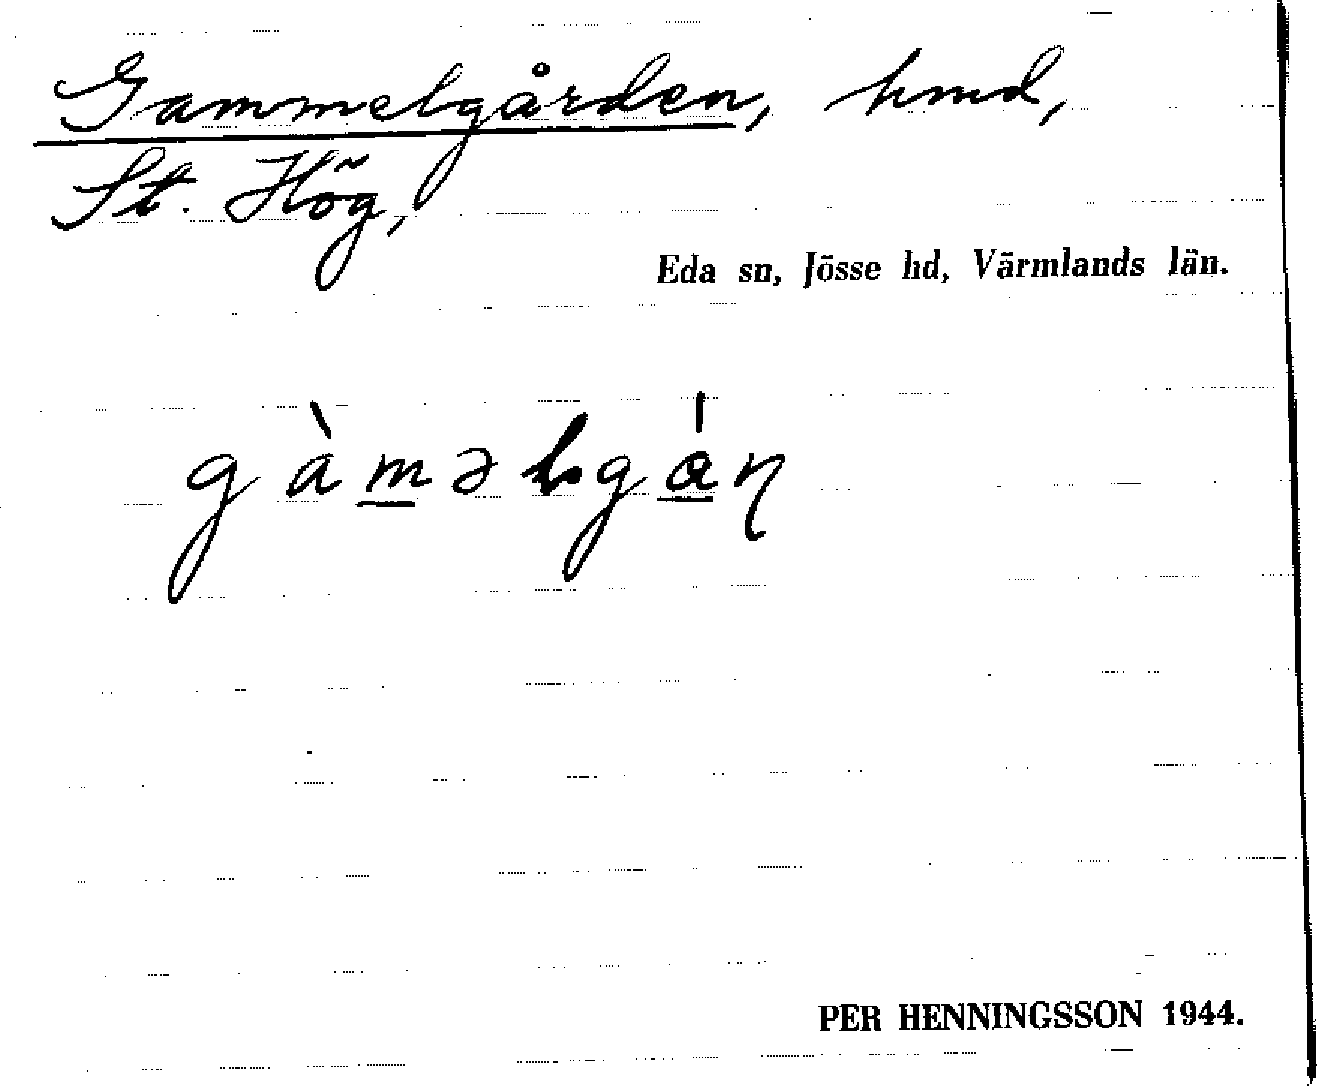 Gammelgården, hmd,
St. Hög,
Eda sn, Jösse hd, Värmlands län.
gàməlgán
PER HENNINGSSON 1944.